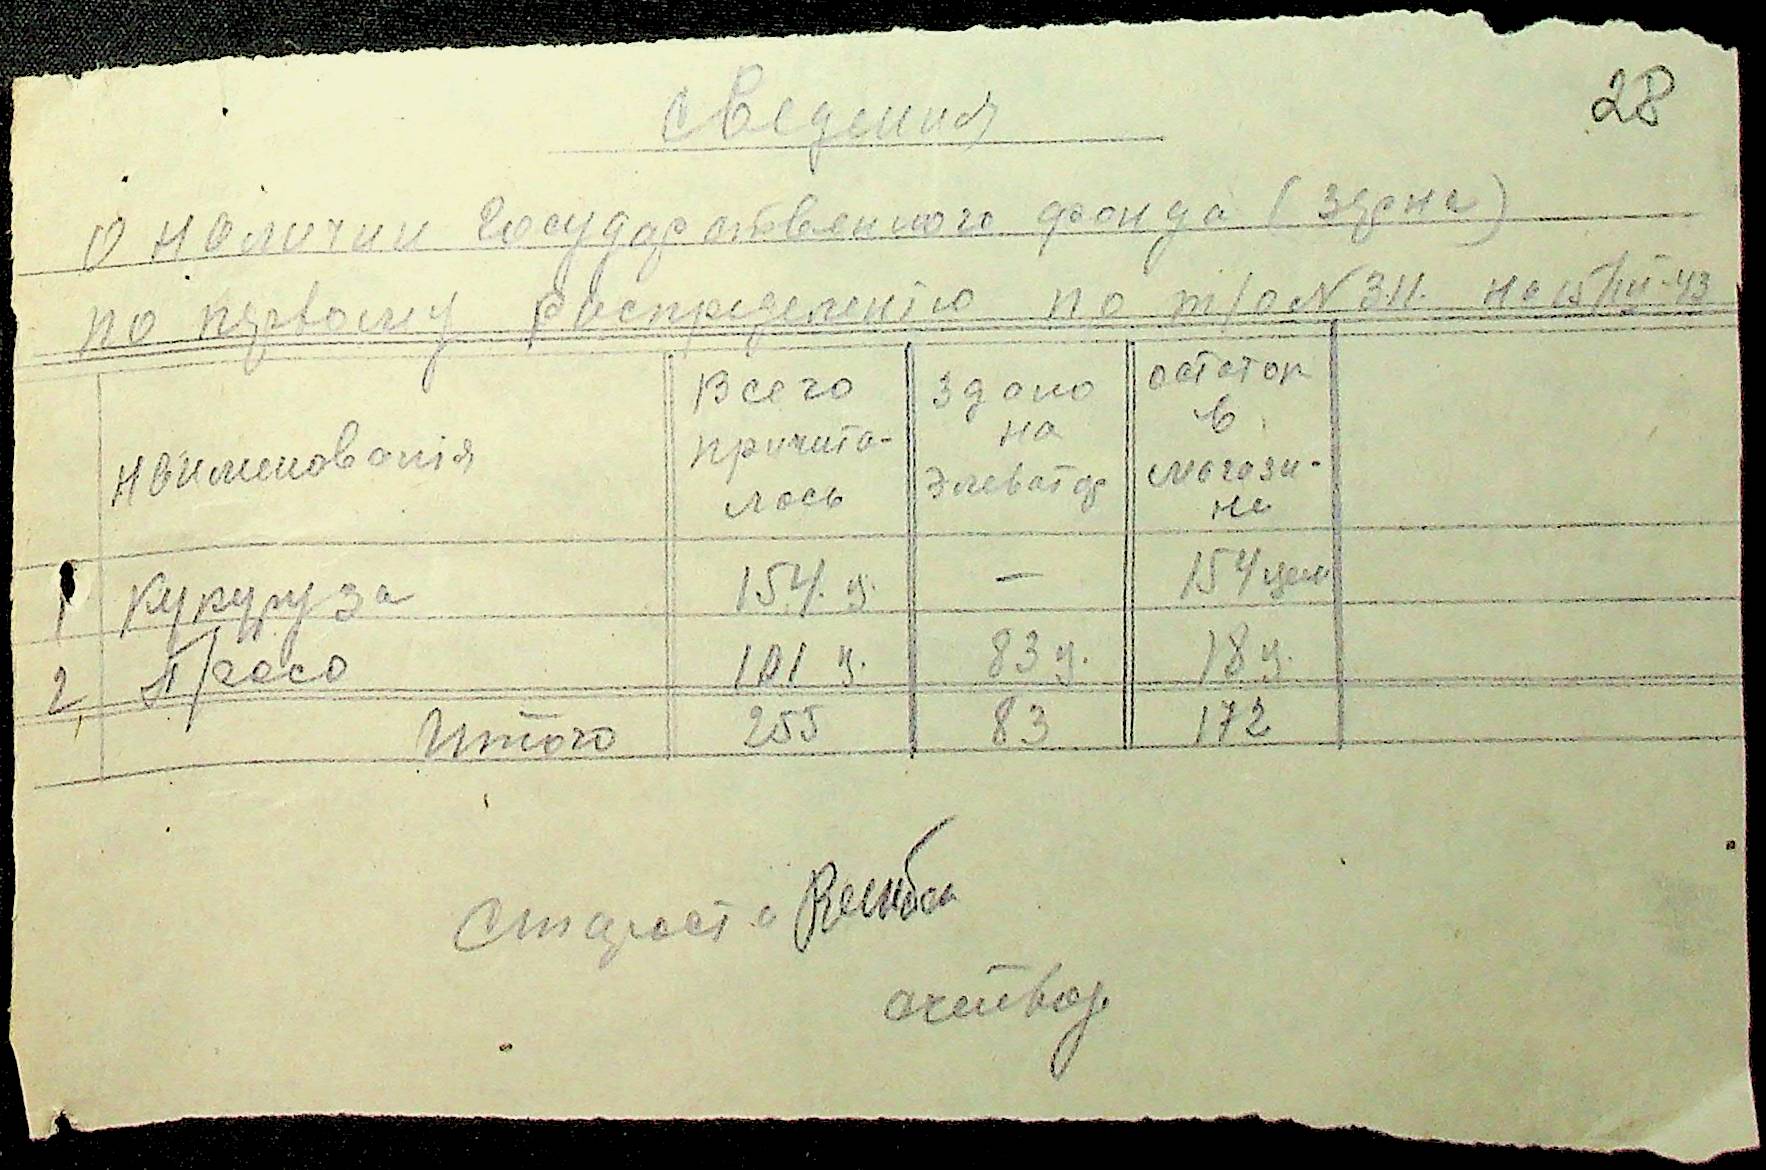 28
Сведения
О наличии Государственного фонда (зерна)
по первому распределенію по т/о № 3.11. на 15/III-43
Наименованія
Всего причита-лось
Здано на Элеватор
остаток в магази-не
1 Кукуруза 154 ц. — 154 цен
2 Просо 101 ц. 83 ц. 18 ц.
Итого 255 83 172
Староста